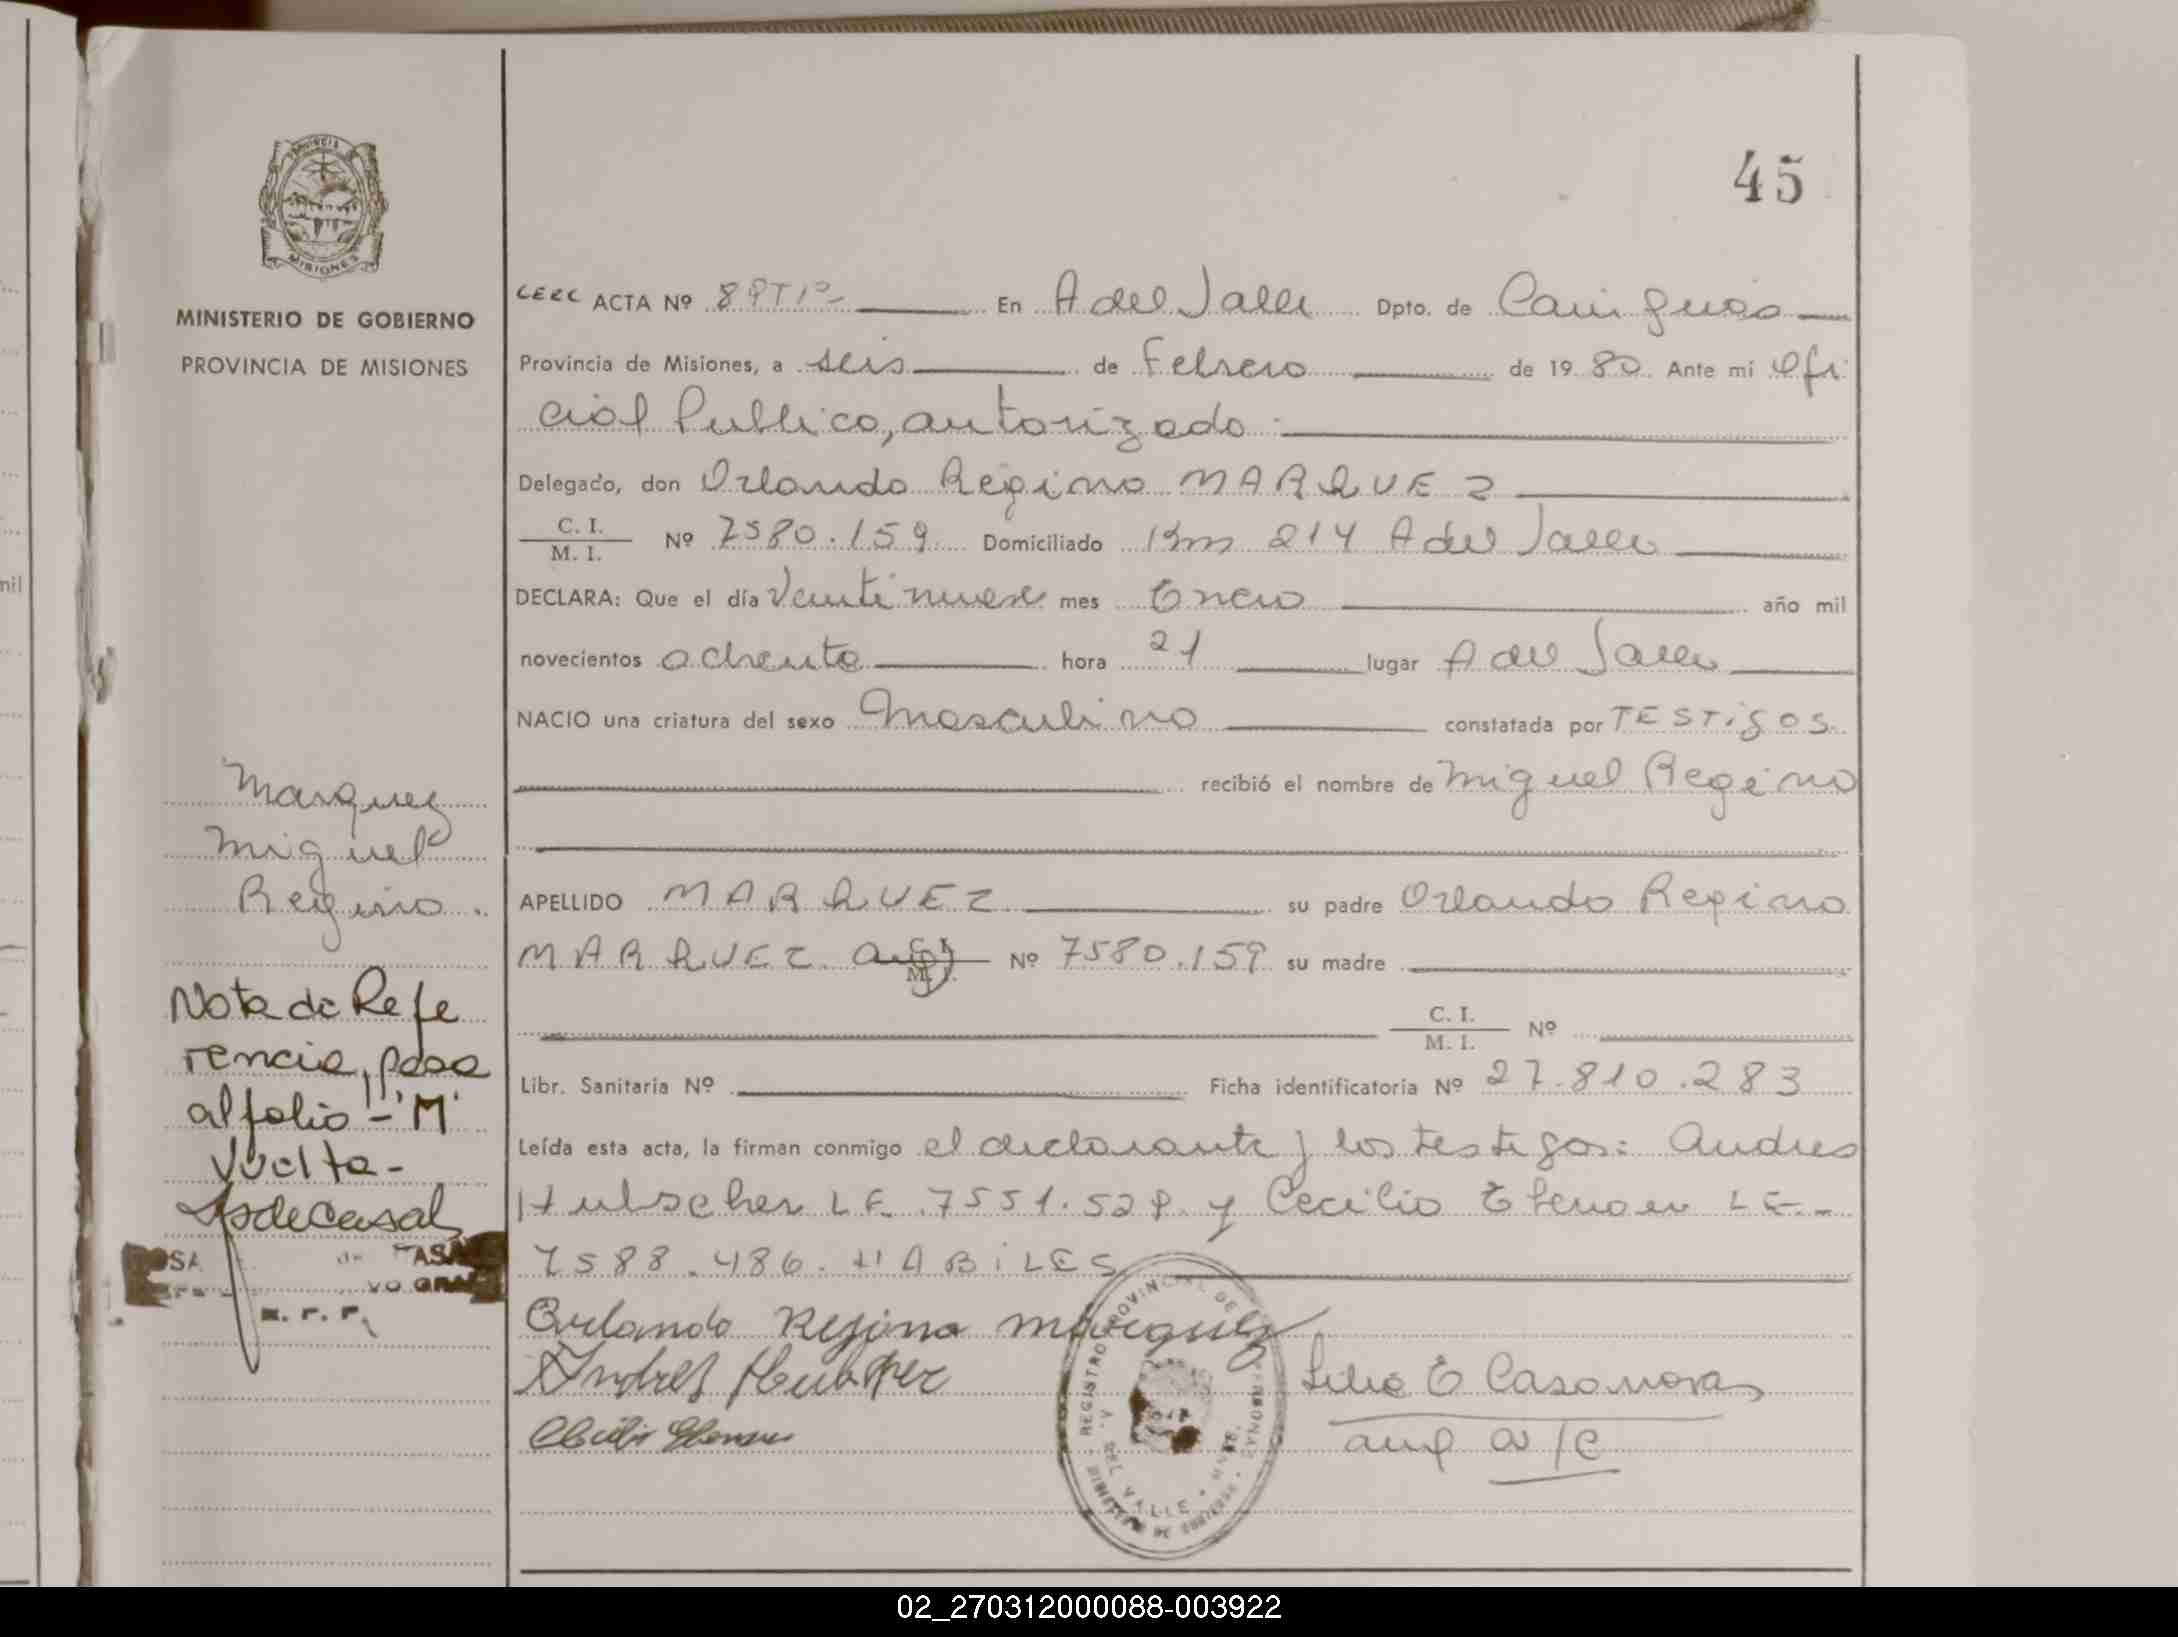 45
PROVINCIA
MISIONES
MINISTERIO DE GOBIERNO
PROVINCIA DE MISIONES
ACTA Nº 89T1º En A del Valle Dpto. de Cainguás
Provincia de Misiones, a seis de Febrero de 1980. Ante mí Ofi
cial Publico, autorizado
Delegado, don Orlando Regino MARQUEZ
C. I.
M. I. Nº 7580.159 Domiciliado Km 214 A del Valle
DECLARA: Que el día Veintinueve mes Enero año mil
novecientos ochenta hora 21 lugar A del Valle
NACIO una criatura del sexo Masculino constatada por TESTigos
recibió el nombre de Miguel Regino
APELLIDO MARQUEZ su padre Orlando Regino
MARQUEZ Arg) M. I. Nº 7580.159 su madre
C. I.
M. I. Nº
Libr. Sanitaria Nº Ficha identificatoria Nº 27.810.283
Leída esta acta, la firman conmigo el declarante y los testigos: Andres
Hulscher LE. 7551.528 y Cecilio LE.-
7588.486. HABiLES
Orlando Regino Marquez
Andres
Casanova
a/c
REGISTRO PROVINCIAL DE PERSONAS
DEL VALLE
Marquez
Miguel
Regino.
Nota de Refe
rencia, pasa
al folio -"M"
Vuelta-
02_270312000088-003922